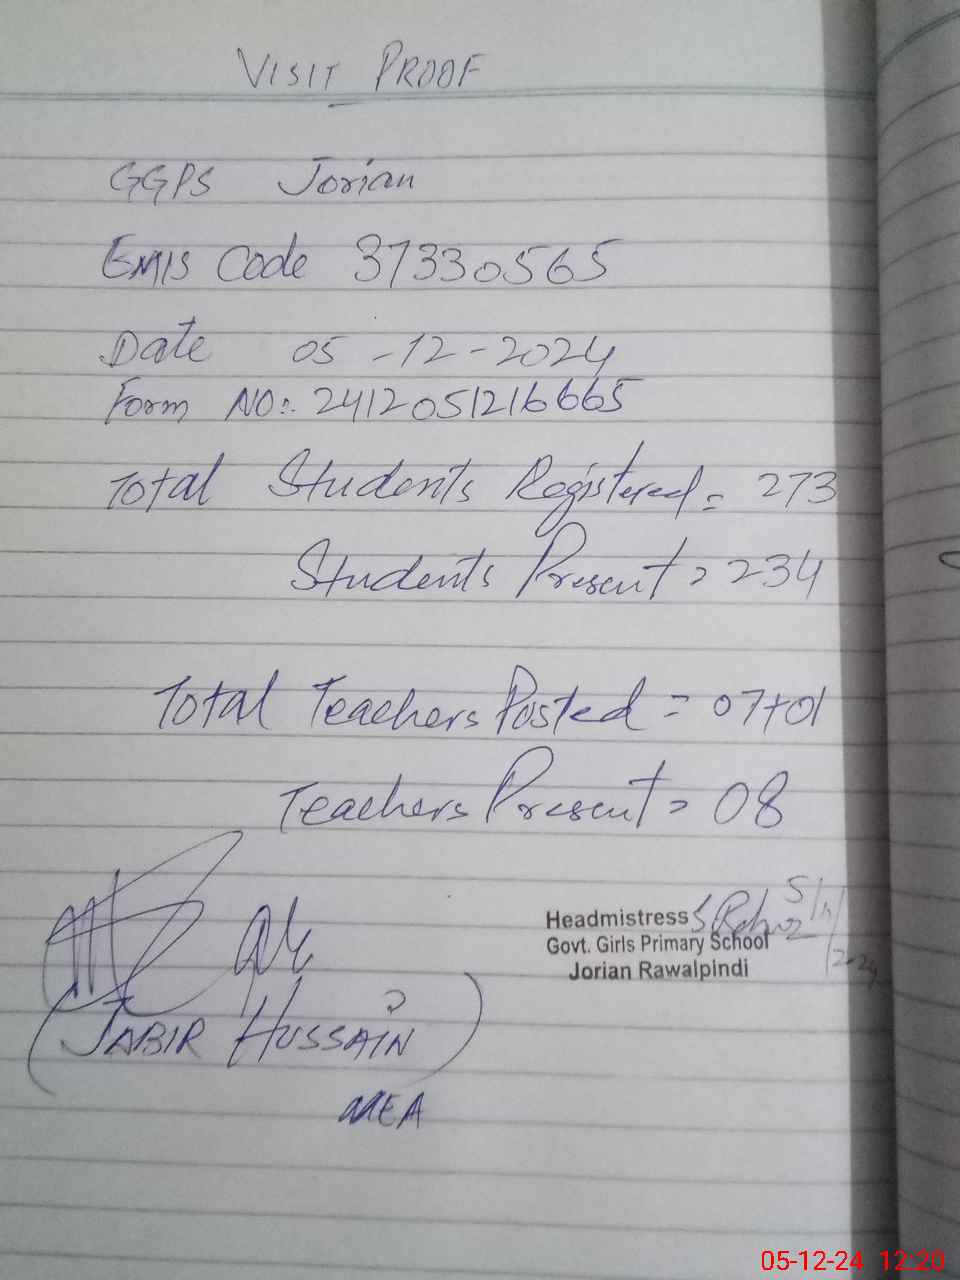 VISIT PROOF
GGPS Jorian
EMIS Code 37330565
Date 05-12-2024
Form NO:. 2412051216665
Total Students Registered = 273
Students Present = 234
Total Teachers Posted = 07+01
Teachers Present = 08
Headmistress
Govt. Girls Primary School
Jorian Rawalpindi
(JABIR HUSSAIN)
MEA
05-12-24 12:20